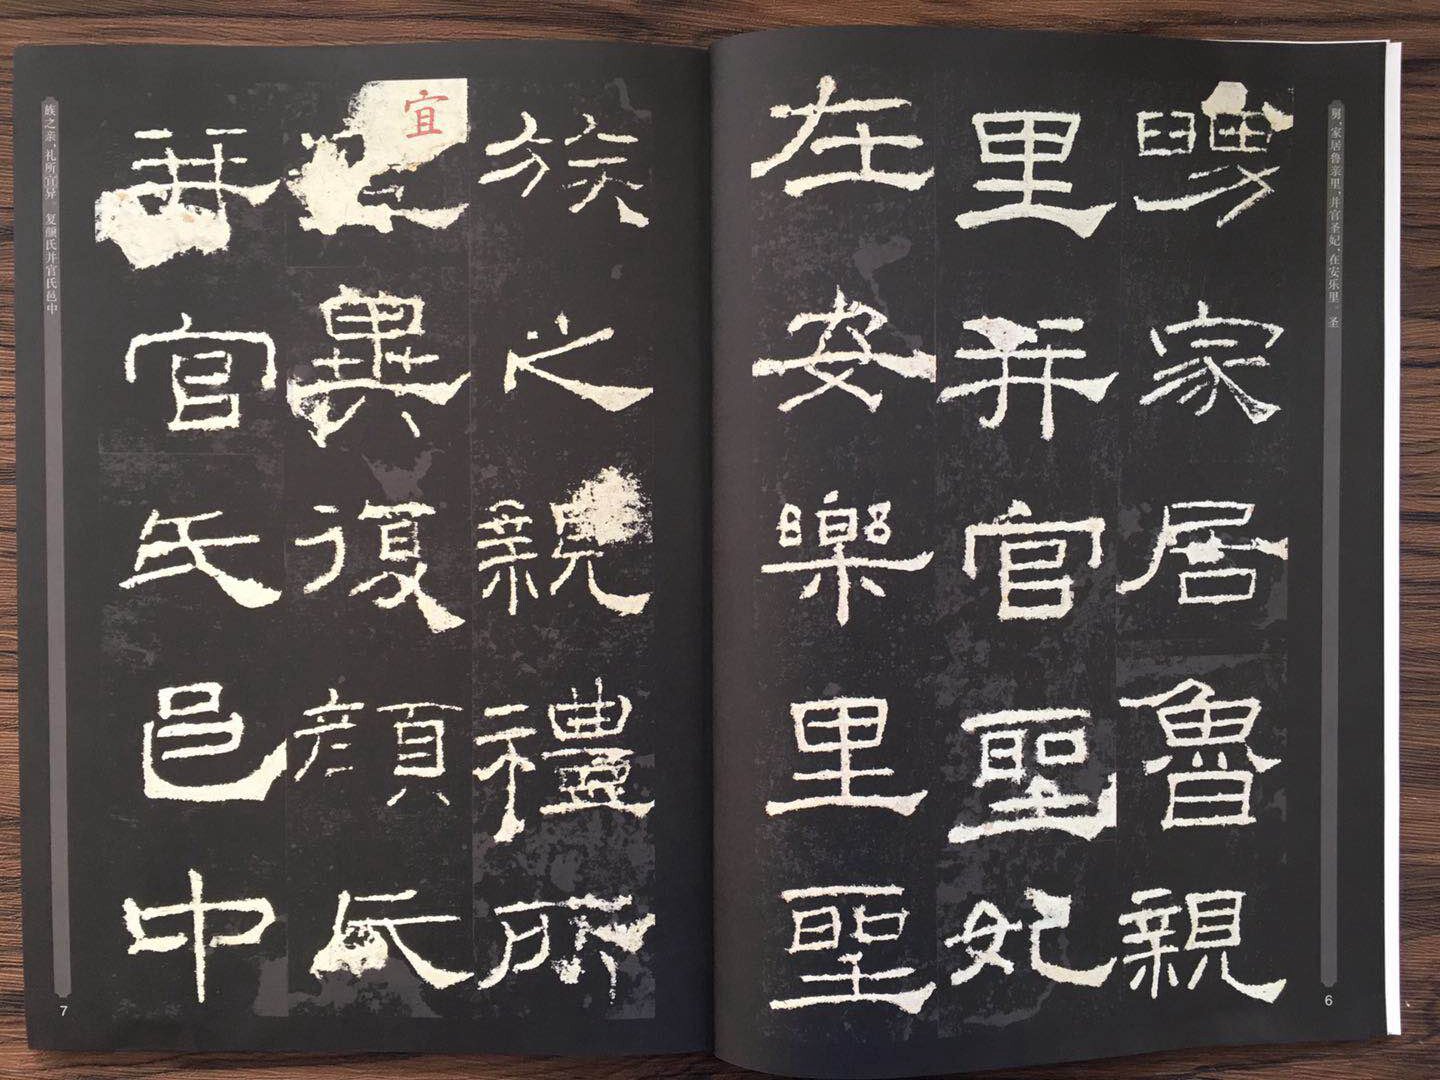 舅，家居鲁亲里，并官圣妃，在安乐里。圣
舅家居魯親
里并官聖妃
在安樂里聖
6
族之親禮所
宜
宜異復顏氏
并官氏邑中
族之亲，礼所宜异。复颜氏并官氏邑中
7